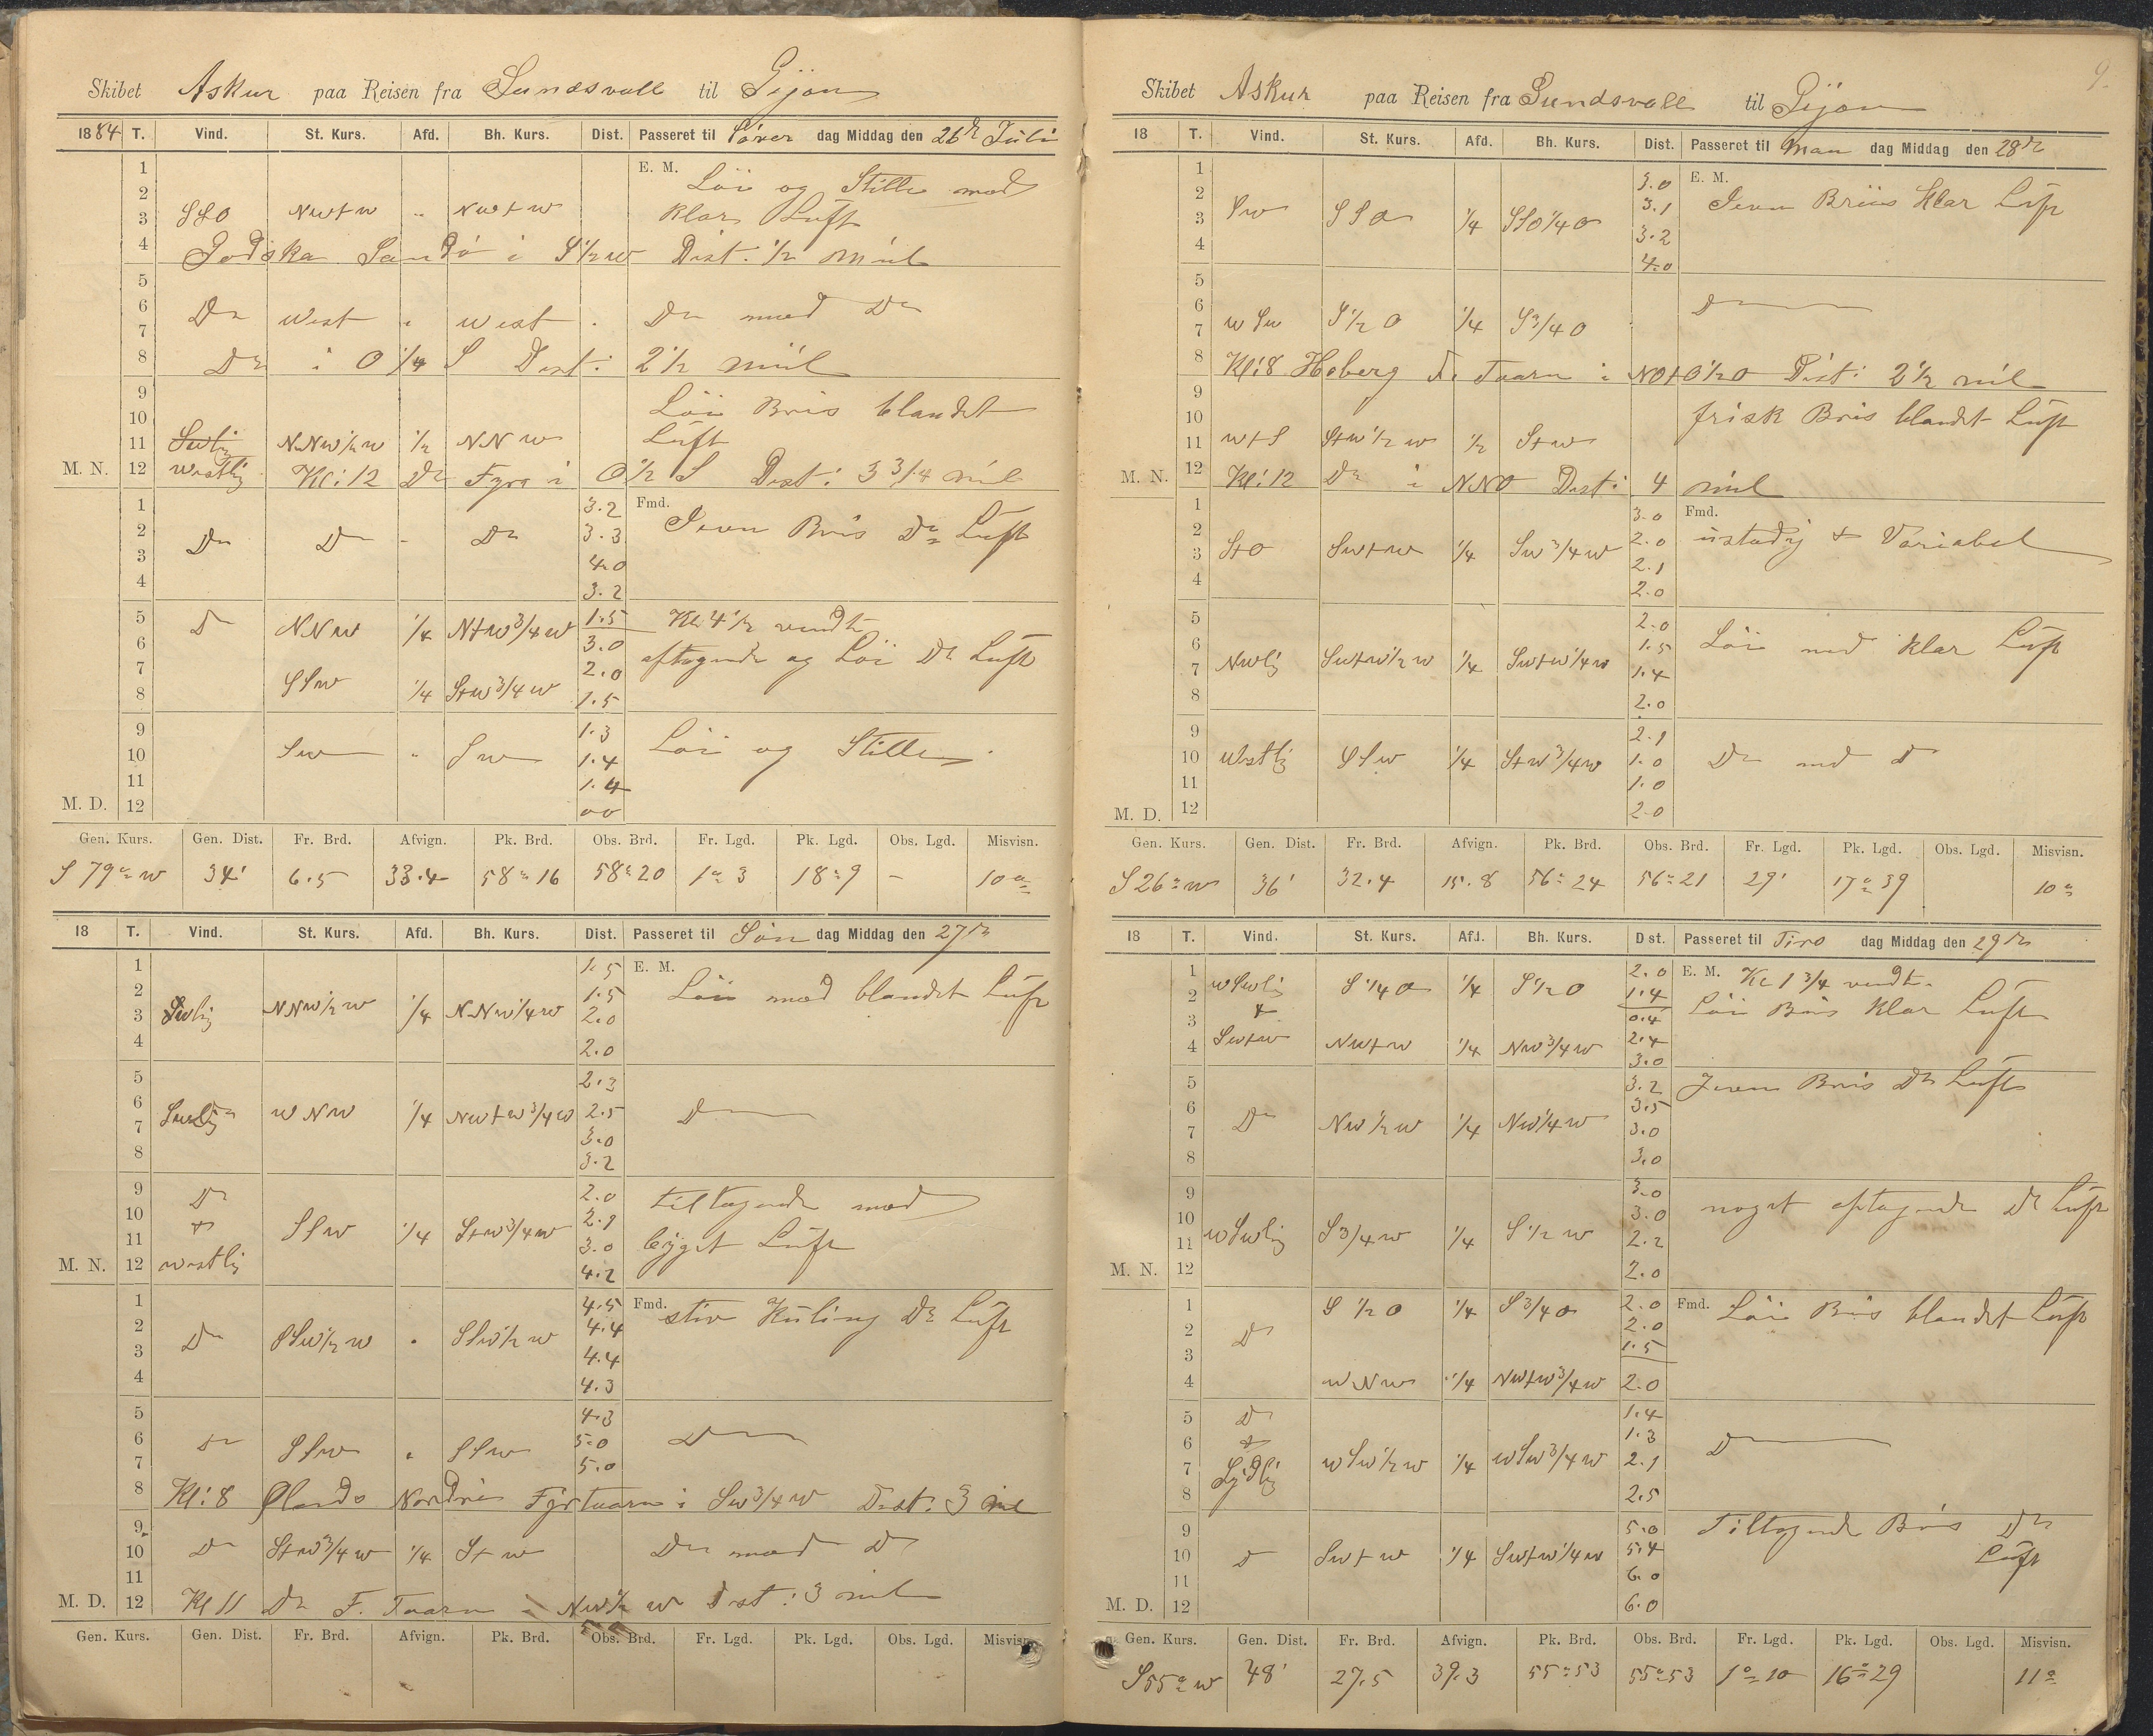 Skibet Askur paa Reisen fra Sundsvall til Gijon
1884 T. Vind. St. Kurs. Afd. Bh. Kurs. Dist. Passeret til Löver dag Middag den 26de Juli
1 E. M. Löi og Stille med
2
3 SSO NWtW " NWtW klar Luft
4 Godska Sandö i S1/2W Dist: 1/2 miil
5
6 Do West " West . Do med Do
7
8 Do i O 1/4 S Dist: 2 1/2 miil
9 Löi Bris blandet
10 Luft
11 Swlig NNW1/2W 1/2 NNW
M. N. 12 westlig Kl: 12 Do Fyra i O 1/2 S Dist: 3 3/4 miil
1 3.2 Fmd. Jevn Bris Do Luft
2 Do Do - Do 3.3
3 4.0
4 3.2
5 Do NNW 1/4 NtW3/4W 1.5 Kl 4 1/2 vendt
6 3.0 aftagende og Löi Do Luft
7 SSW 1/4 StW3/4W 2.0
8 1.5
9 1.3 Löi og Stille
10 SW " SW 1.4
11 1.4
M. D. 12 00
Gen. Kurs. Gen. Dist. Fr. Brd. Afvign. Pk. Brd. Obs. Brd. Fr. Lgd. Pk. Lgd. Obs. Lgd. Misvisn.
S 79° W 34' 6.5 33.4 58° 16 58° 20 1° 3 18° 9 - 10°
18 T. Vind. St. Kurs. Afd. Bh. Kurs. Dist. Passeret til Søn dag Middag den 27de
1 1.5 E. M. Löi med blandet Luft
2 1.5
3 Swlig NNW1/2W 1/4 NNW1/4W 2.0
4 2.0
5 2.3
6 WNW 1/4 NWtW3/4W 2.5 Do
7 3.0
8 3.2
9 Do 2.0 tiltagende med
10 + SSW 1/4 StW3/4W 2.1
11 3.0 bÿget Luft
M. N. 12 westlig 4.2
1 4.5 Fmd. stiv Kuling Do Luft
2 Do SSW1/2W " SSW1/2W 4.4
3 4.4
4 4.3
5 4.3
6 Do SSW " SSW 5.0 Do
7 5.0
8 Kl: 8 Ølands Nordre Fyrtaarn i SW3/4W Dist: 3 mil
9
10 Do StW3/4W 1/4 StW Do med Do
11
M. D. 12 Kl 11 Do F. Taarn i NW1/2W Dist: 3 mil
Gen. Kurs. Gen. Dist. Fr. Brd. Afvign. Pk. Brd. Obs. Brd. Fr. Lgd. Pk. Lgd. Obs. Lgd. Misvisn.
9.
Skibet Askur paa Reisen fra Sundsvall til Gijon
18 T. Vind. St. Kurs. Afd. Bh. Kurs. Dist. Passeret til Man dag Middag den 28de
1 3.0 E. M. Jevn Briis klar Luft
2 SW SSO 1/4 SSO1/4O 3.1
3 3.2
4 4.0
5
6 WSW S1/2O 1/4 S3/4O Do
7
8 Kl: 8 Hoberg F. Taarn i NOtO1/2O Dist: 2 1/2 mil
9 frisk Bris blandet Luft
10
11 WtS StW1/2W 1/2 StW
M. N. 12 Kl: 12 Do i NNO Dist: 4 miil
1 3.0 Fmd. ustadig + Variabel
2 2.0
3 StO SWtW 1/4 SW3/4W 2.1
4 2.0
5 2.0
6 1.5 Löi med klar Luft
7 NWlig SWtW1/2W 1/4 SWtW1/4W 1.4
8 2.0
9 2.1
10 Westlig SSW 1/4 StW3/4W 1.0 Do med Do
11 1.0
M. D. 12 2.0
Gen. Kurs. Gen. Dist. Fr. Brd. Afvign. Pk. Brd. Obs. Brd. Fr. Lgd. Pk. Lgd. Obs. Lgd. Misvisn.
S 26° W 36' 32.4 15.8 56° 24 56° 21 29' 17° 39 10°
18 T. Vind. St. Kurs. Afd. Bh. Kurs. Dist. Passeret til Tirs dag Middag den 29de
1 WSWlig S 1/4 O 1/4 S 1/2 O 2.0 E. M. Kl 1 3/4 vendt.
2 + 1.4 Löi Bris klar Luft
3 0.4
4 SWtW NWtW 1/4 NW3/4W 2.4
3.0
5 3.2 Jevn Bris Do Luft
6 Do NW1/2W 1/4 NW1/4W 3.5
7 3.0
8 3.0
9 3.0 noget aftagende Do Luft
10 3.0
11 WSWlig S3/4W 1/4 S 1/2 W 2.2
M. N. 12 2.0
1 S 1/2 O 1/4 S3/4O 2.0 Fmd. Löi Bris blandet Luft
2 Do 2.0
3 1.5
4 WNW 1/4 NWtW3/4W 2.0
5 Do 1.4
6 + 1.3 Do
7 Sÿdlig WSW1/2W 1/4 WSW3/4W 2.1
8 2.5
9 5.0 Tiltagende Bris Do
10 Do SWtW 1/4 SWtW1/4W 5.4 Luft
11 6.0
M. D. 12 6.0
Gen. Kurs. Gen. Dist. Fr. Brd. Afvign. Pk. Brd. Obs. Brd. Fr. Lgd. Pk. Lgd. Obs. Lgd. Misvisn.
S 55° W 48' 27.5 39.3 55° 53 55° 53 1° 10 16° 29 11°